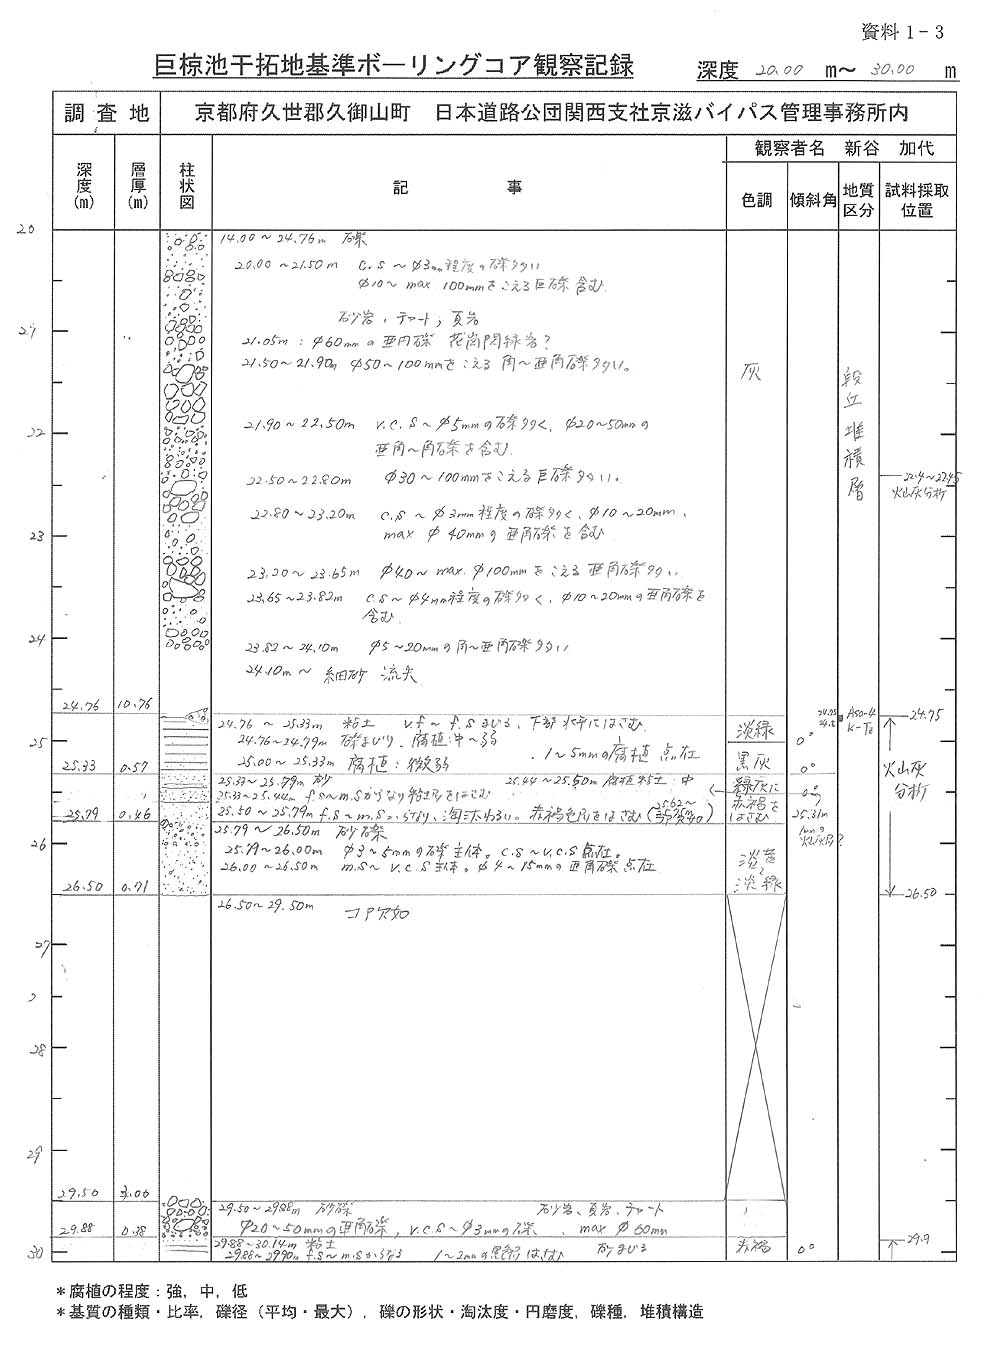 資料1-3
巨椋池干拓地基準ボーリングコア観察記録 深度 20.00 m~ 30.00 m
調査地 京都府久世郡久御山町 日本道路公団関西支社京滋バイパス管理事務所内
観察者名 新谷 加代
深度(m) 層厚(m) 柱状図 記事 色調 傾斜角 地質区分 試料採取位置
20
14.00~24.76m 礫
20.00~21.50m c.s~φ3mm程度の礫多い
φ10~max 100mmをこえる巨礫含む.
砂岩, チャート, 頁岩
21
21.05m : φ60mmの亜円礫 花崗閃緑岩?
21.50~21.90m φ50~100mmをこえる角~亜角礫多い。
灰
段丘堆積層
22
21.90~22.50m v.c.s~φ5mmの礫多く、φ20~50mmの
亜角~角礫を含む.
22.50~22.80m φ30~100mmをこえる巨礫多い。
22.4~22.45
火山灰分析
22.80~23.20m c.s~φ3mm程度の礫多く、φ10~20mm、
max φ40mmの亜角礫を含む
23
23.20~23.65m φ40~max.φ100mmをこえる亜角礫多い.
23.65~23.82m c.s~φ4mm程度の礫多く、φ10~20mmの亜角礫を
含む.
24
23.82~24.10m φ5~20mmの角~亜角礫多い
24.10m~ 細砂 流失
24.76 10.76
24.76~25.33m 粘土 v.f~f.sまじる、下部水平にはさむ.
淡緑 Aso-4 K-Tz 24.75
24.76~24.79m 礫まじり、腐植:中~弱
25
25.00~25.33m 腐植:微弱 . 1~5mmの腐植点在
0°
25.33 0.57
黒灰 0° 火山灰分析
25.33~25.79m 砂 25.44~25.50m 腐植粘土:中
25.33~25.44m f.s~m.sからなり粘土をはさむ
緑灰に赤褐をはさむ 0°
25.79 0.46
25.50~25.79m f.s~m.sからなり、淘汰わるい。赤褐色所をはさむ
25.31m
1mmの
火山灰?
25.79~26.50m 砂礫
26
25.79~26.00m φ3~5mmの礫主体。c.s~v.c.s点在。
26.00~26.50m m.s~v.c.s主体。φ4~15mmの亜角礫点在
淡黄~淡緑
26.50 0.71 26.50
26.50~29.50m コア欠如
27
28
29
29.50 3.00
29.50~29.88m 砂礫 砂岩、頁岩、チャート
29.88 0.38
φ20~50mmの亜角礫, v.c.s~φ3mmの礫、 max φ60mm
29.88~30.14m 粘土
29.88~29.90m f.s~m.sからなる 1~2mmの黒 はさむ 砂まじる
赤褐 0° 29.9
30
*腐植の程度:強,中,低
*基質の種類・比率,礫径(平均・最大),礫の形状・淘汰度・円磨度,礫種,堆積構造